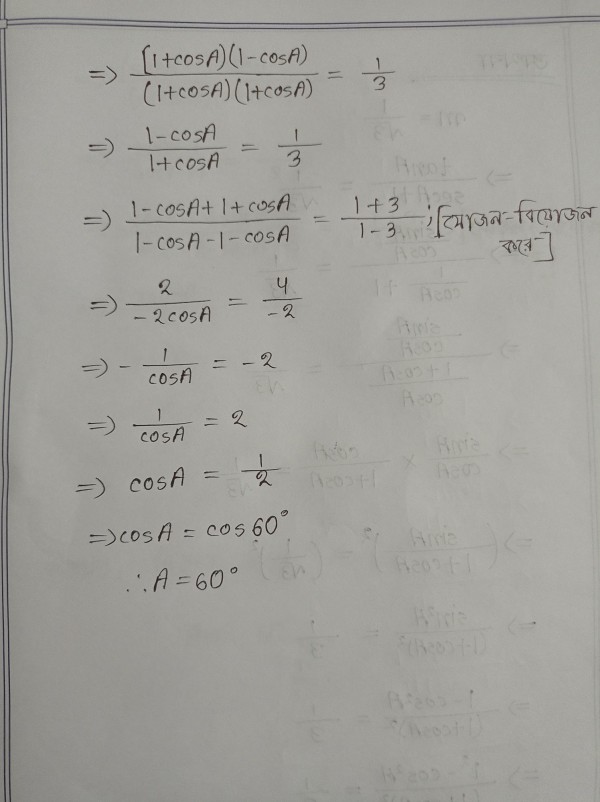 => [1+cosA)(1-cosA) / (1+cosA)(1+cosA) = 1/3
=> 1-cosA / 1+cosA = 1/3
=> 1-cosA+1+cosA / 1-cosA-1-cosA = 1+3 / 1-3 ; [যোজন-বিয়োজন
করে-]
=> 2 / -2cosA = 4 / -2
=> - 1/cosA = -2
=> 1/cosA = 2
=> cosA = 1/2
=> cosA = cos60°
∴ A = 60°